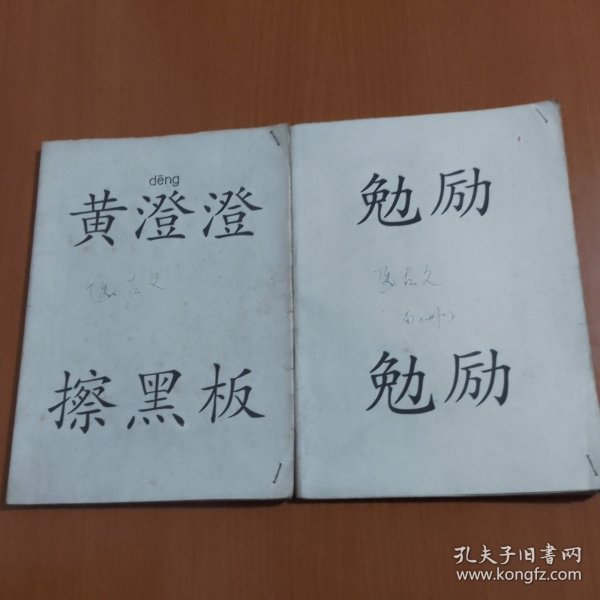 dēng
黄澄澄
擦黑板
勉励
勉励
孔夫子旧书网
www.kongfz.com